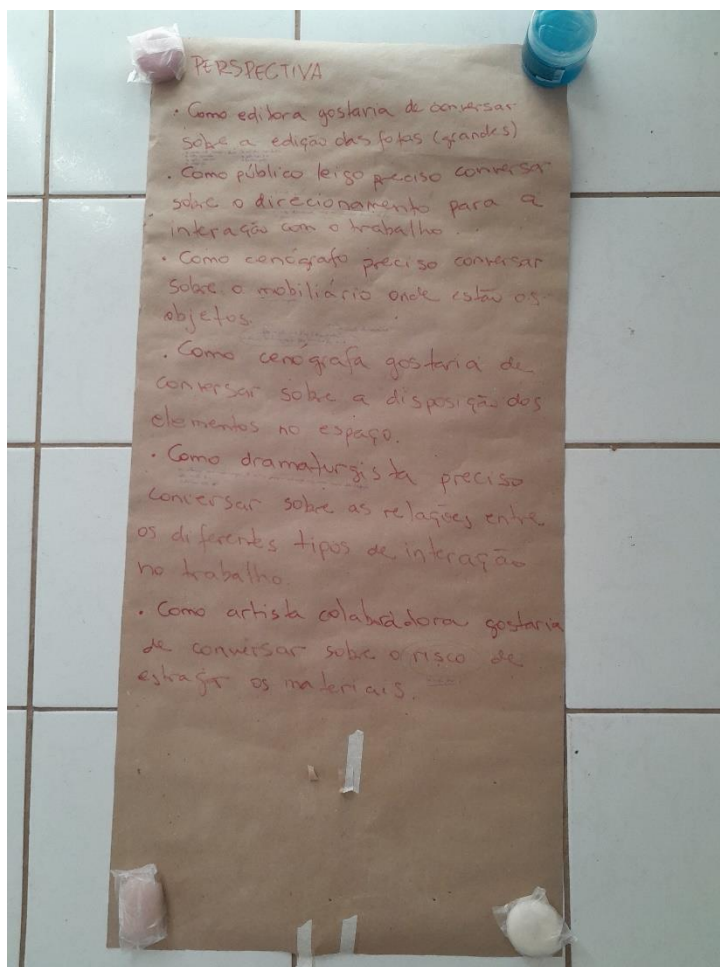 PERSPECTIVA
• Como editora gostaria de conversar
sobre a edição das fotos (grandes)
• Como público leigo preciso conversar
sobre o direcionamento para a
interação com o trabalho.
• Como cenógrafo preciso conversar
sobre o mobiliário onde estão os
objetos.
• Como cenógrafa gostaria de
conversar sobre a disposição dos
elementos no espaço.
• Como dramaturgista preciso
conversar sobre as relações entre
os diferentes tipos de interação
no trabalho.
• Como artista colaboradora gostaria
de conversar sobre o risco de
estragar os materiais.